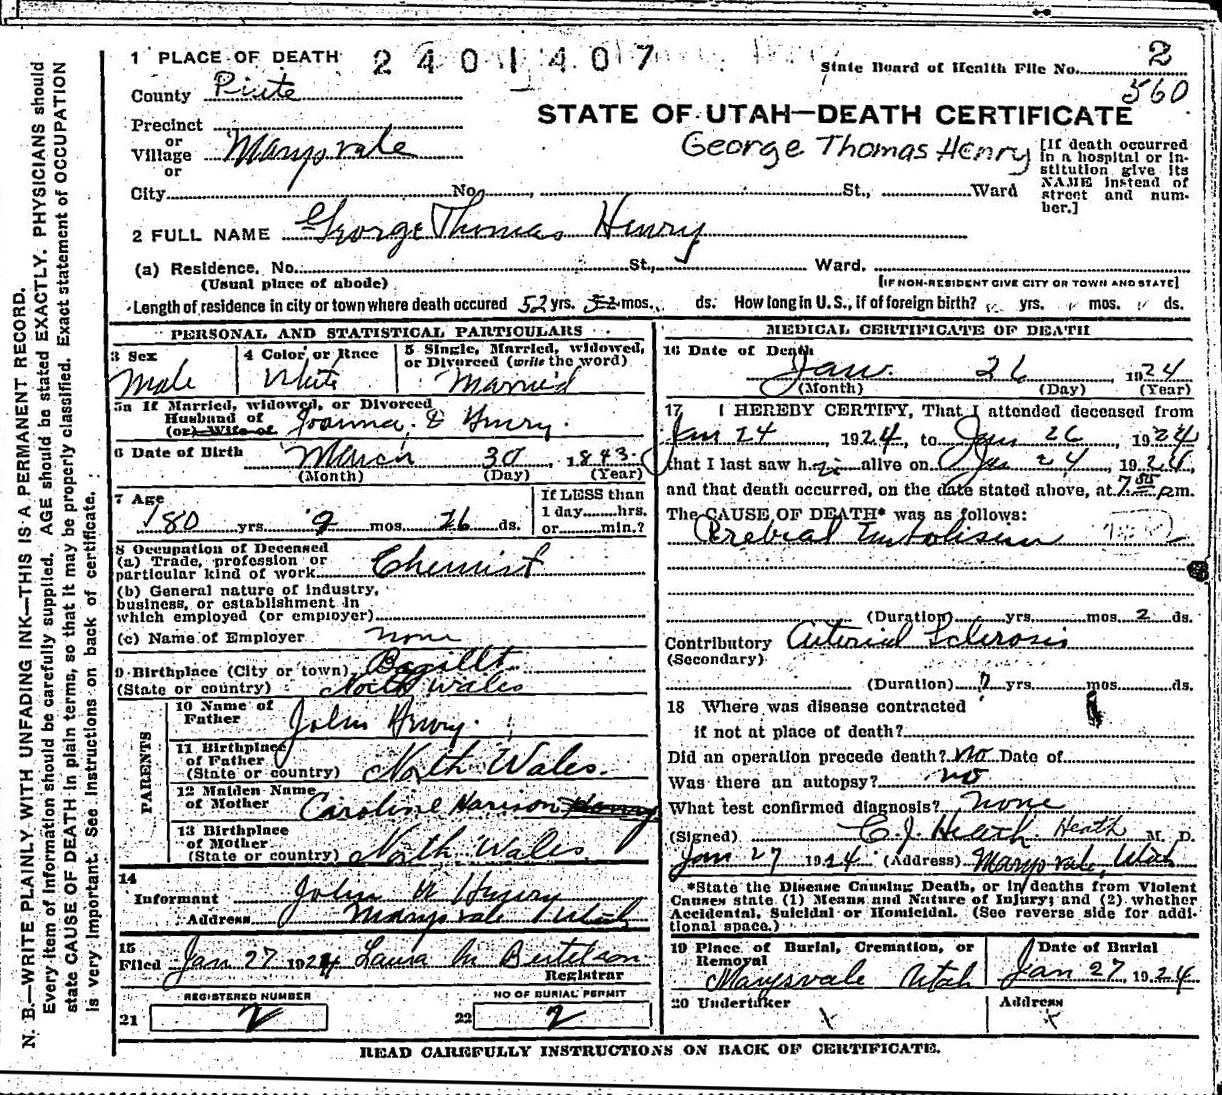 1 PLACE OF DEATH 2 4 0 1 4 0 7
State Board of Health File No. 2
560
County Piute
STATE OF UTAH—DEATH CERTIFICATE
Precinct
or
Village Marysvale
or
George Thomas Henry
[If death occurred in a hospital or institution give its NAME instead of street and number.]
City No. , St., Ward
2 FULL NAME George Thomas Henry
(a) Residence. No. St., Ward.
(Usual place of abode) [IF NON-RESIDENT GIVE CITY OR TOWN AND STATE]
Length of residence in city or town where death occured 52 yrs. mos. ds. How long in U. S., if of foreign birth? yrs. mos. ds.
PERSONAL AND STATISTICAL PARTICULARS
3 Sex 4 Color or Race 5 Single, Married, widowed,
or Divorced (write the word)
Male White Married
5a If Married, widowed, or Divorced
Husband of
(or) Wife of Joanna. E Henry.
6 Date of Birth March 30, 1843.
(Month) (Day) (Year)
7 Age If LESS than
1 day hrs.
80 yrs. 9 mos. 26 ds. or min.?
8 Occupation of Deceased
(a) Trade, profession or
particular kind of work Chemist
(b) General nature of industry,
business, or establishment in
which employed (or employer)
(c) Name of Employer none
9 Birthplace (City or town) Bagillt
(State or country) North Wales
PARENTS
10 Name of
Father John Henry.
11 Birthplace
of Father
(State or country) North Wales.
12 Maiden Name
of Mother Caroline Harison Henry
13 Birthplace
of Mother
(State or country) North Wales.
14
Informant John W Henry
Address Marysvale Utah
15
Filed Jan 27 1924 Laura M Bertelson
Registrar
REGISTERED NUMBER NO OF BURIAL PERMIT
21 2 22 2
MEDICAL CERTIFICATE OF DEATH
16 Date of Death
Jan. 26, 1924
(Month) (Day) (Year)
17 I HEREBY CERTIFY, That I attended deceased from
Jan 24, 1924, to Jan 26 1924
that I last saw him alive on Jan 24, 1924,
and that death occurred, on the date stated above, at 7 p.m.
The CAUSE OF DEATH* was as follows:
Cerebial Embolism
(Duration) yrs. mos. 2 ds.
Contributory Arterial Sclerosis
(Secondary)
(Duration) ? yrs. mos. ds.
18 Where was disease contracted
if not at place of death?
Did an operation precede death? no Date of
Was there an autopsy? no
What test confirmed diagnosis? none
(Signed) C. J. Heath. Heath M. D.
Jan 27 1924 (Address) Marysvale, Utah
*State the Disease Causing Death, or in deaths from Violent
Causes state (1) Means and Nature of Injury; and (2) whether
Accidental, Suicidal or Homicidal. (See reverse side for additional space.)
19 Place of Burial, Cremation, or
Removal
Marysvale Utah
Date of Burial
Jan 27, 1924
20 Undertaker Address
x x
READ CAREFULLY INSTRUCTIONS ON BACK OF CERTIFICATE.
N. B.—WRITE PLAINLY WITH UNFADING INK—THIS IS A PERMANENT RECORD.
Every item of information should be carefully supplied. AGE should be stated EXACTLY. PHYSICIANS should
state CAUSE OF DEATH in plain terms, so that it may be properly classified. Exact statement of OCCUPATION
is very important. See instructions on back of certificate.